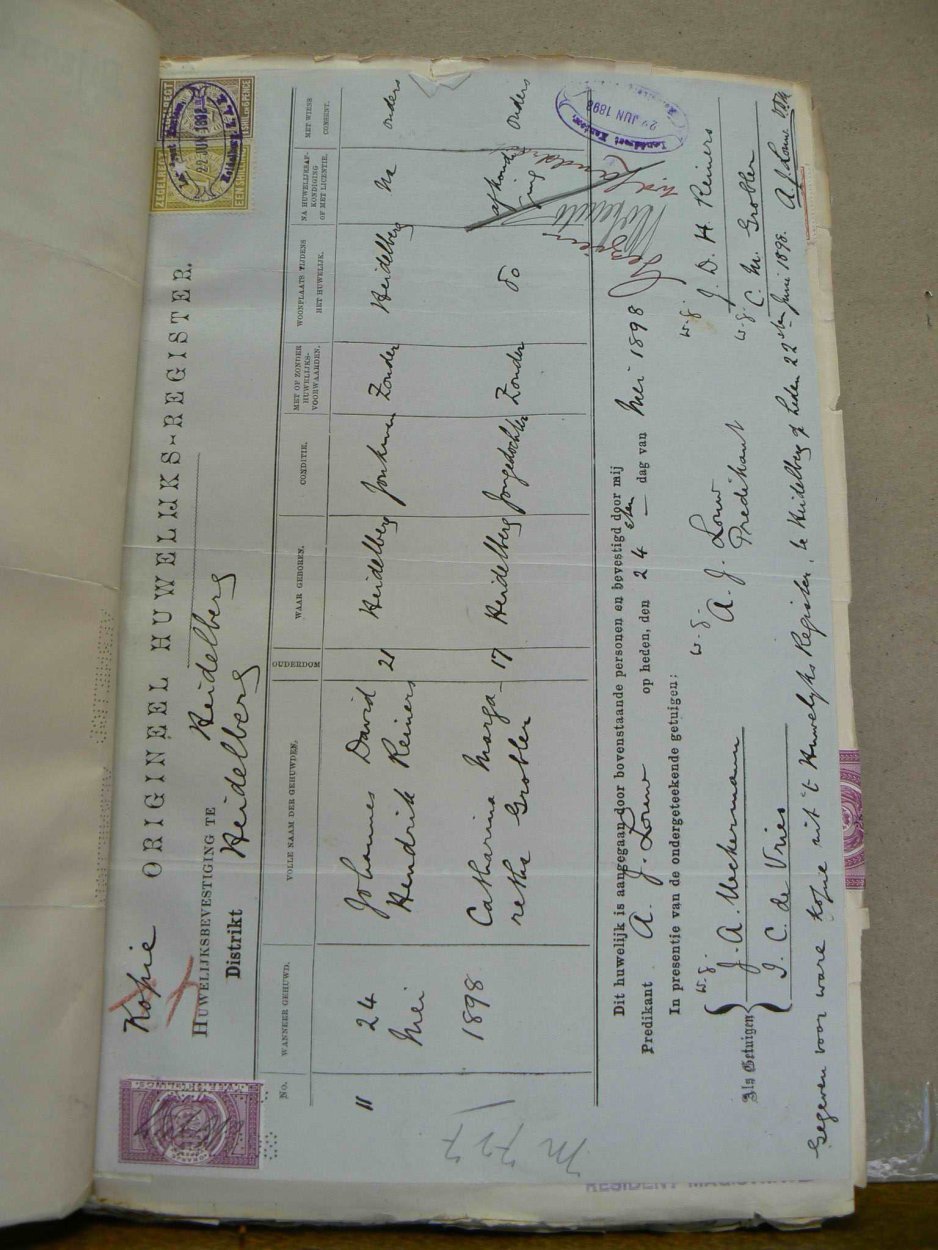 Kopie
ORIGINEEL HUWELIJKS-REGISTER.
HUWELIJKSBEVESTIGING TE Heidelberg
Distrikt Heidelberg
No.
WANNEER GEHUWD.
VOLLE NAAM DER GEHUWDEN.
OUDERDOM
WAAR GEBOREN.
CONDITIE.
MET OF ZONDER HUWELIJKS-VOORWAARDEN.
WOONPLAATS TIJDENS HET HUWELIJK.
NA HUWELIJKSAF-KONDIGING OF MET LICENTIE.
MET WIENS CONSENT.
11 24 Johannes David 21 Heidelberg Jonkman Zonder Heidelberg Na ouders
Mei Hendrik Reiniers
1898 Catharina Marga- 17 Heidelberg Jongedochter Zonder do afkondi ouders
retha Grobler ging
Dit huwelijk is aangegaan door bovenstaande personen en bevestigd door mij
Predikant A. J. Louw op heden, den 24sten dag van Mei 1898
In presentie van de ondergeteekende getuigen:
w.g. w.g. w.g.
Als Getuigen J. A. Meckermann A. J. Louw J. D. H. Reiniers
Predikant w.g.
I. C. de Vries C. M. Grobler
Gegeven voor ware Kopie uit 't Huwelijks Register, te Heidelberg heden 22sten Juni 1898. A. J. Louw
M 727
ZEGELREGT
22 JUN 1898
Landdrost Kantoor
29 JUN 1898
RESIDENT